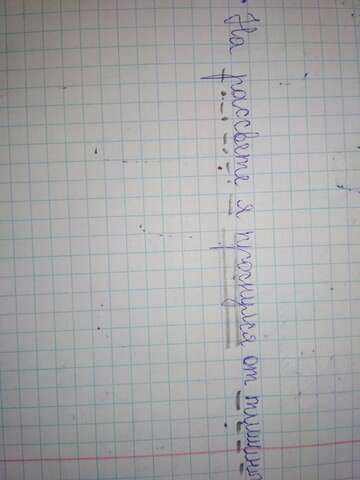 На рассвете я проснулся от тишины